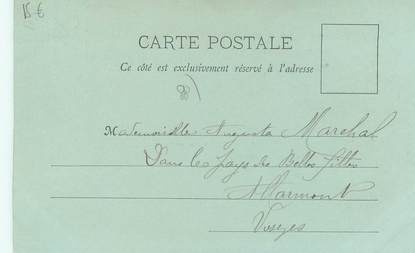 15 €
CARTE POSTALE
Ce côté est exclusivement réservé à l'adresse
Mademoiselle Augusta Marchal
Dans les Pays des Belles filles
Allarmont
Vosges